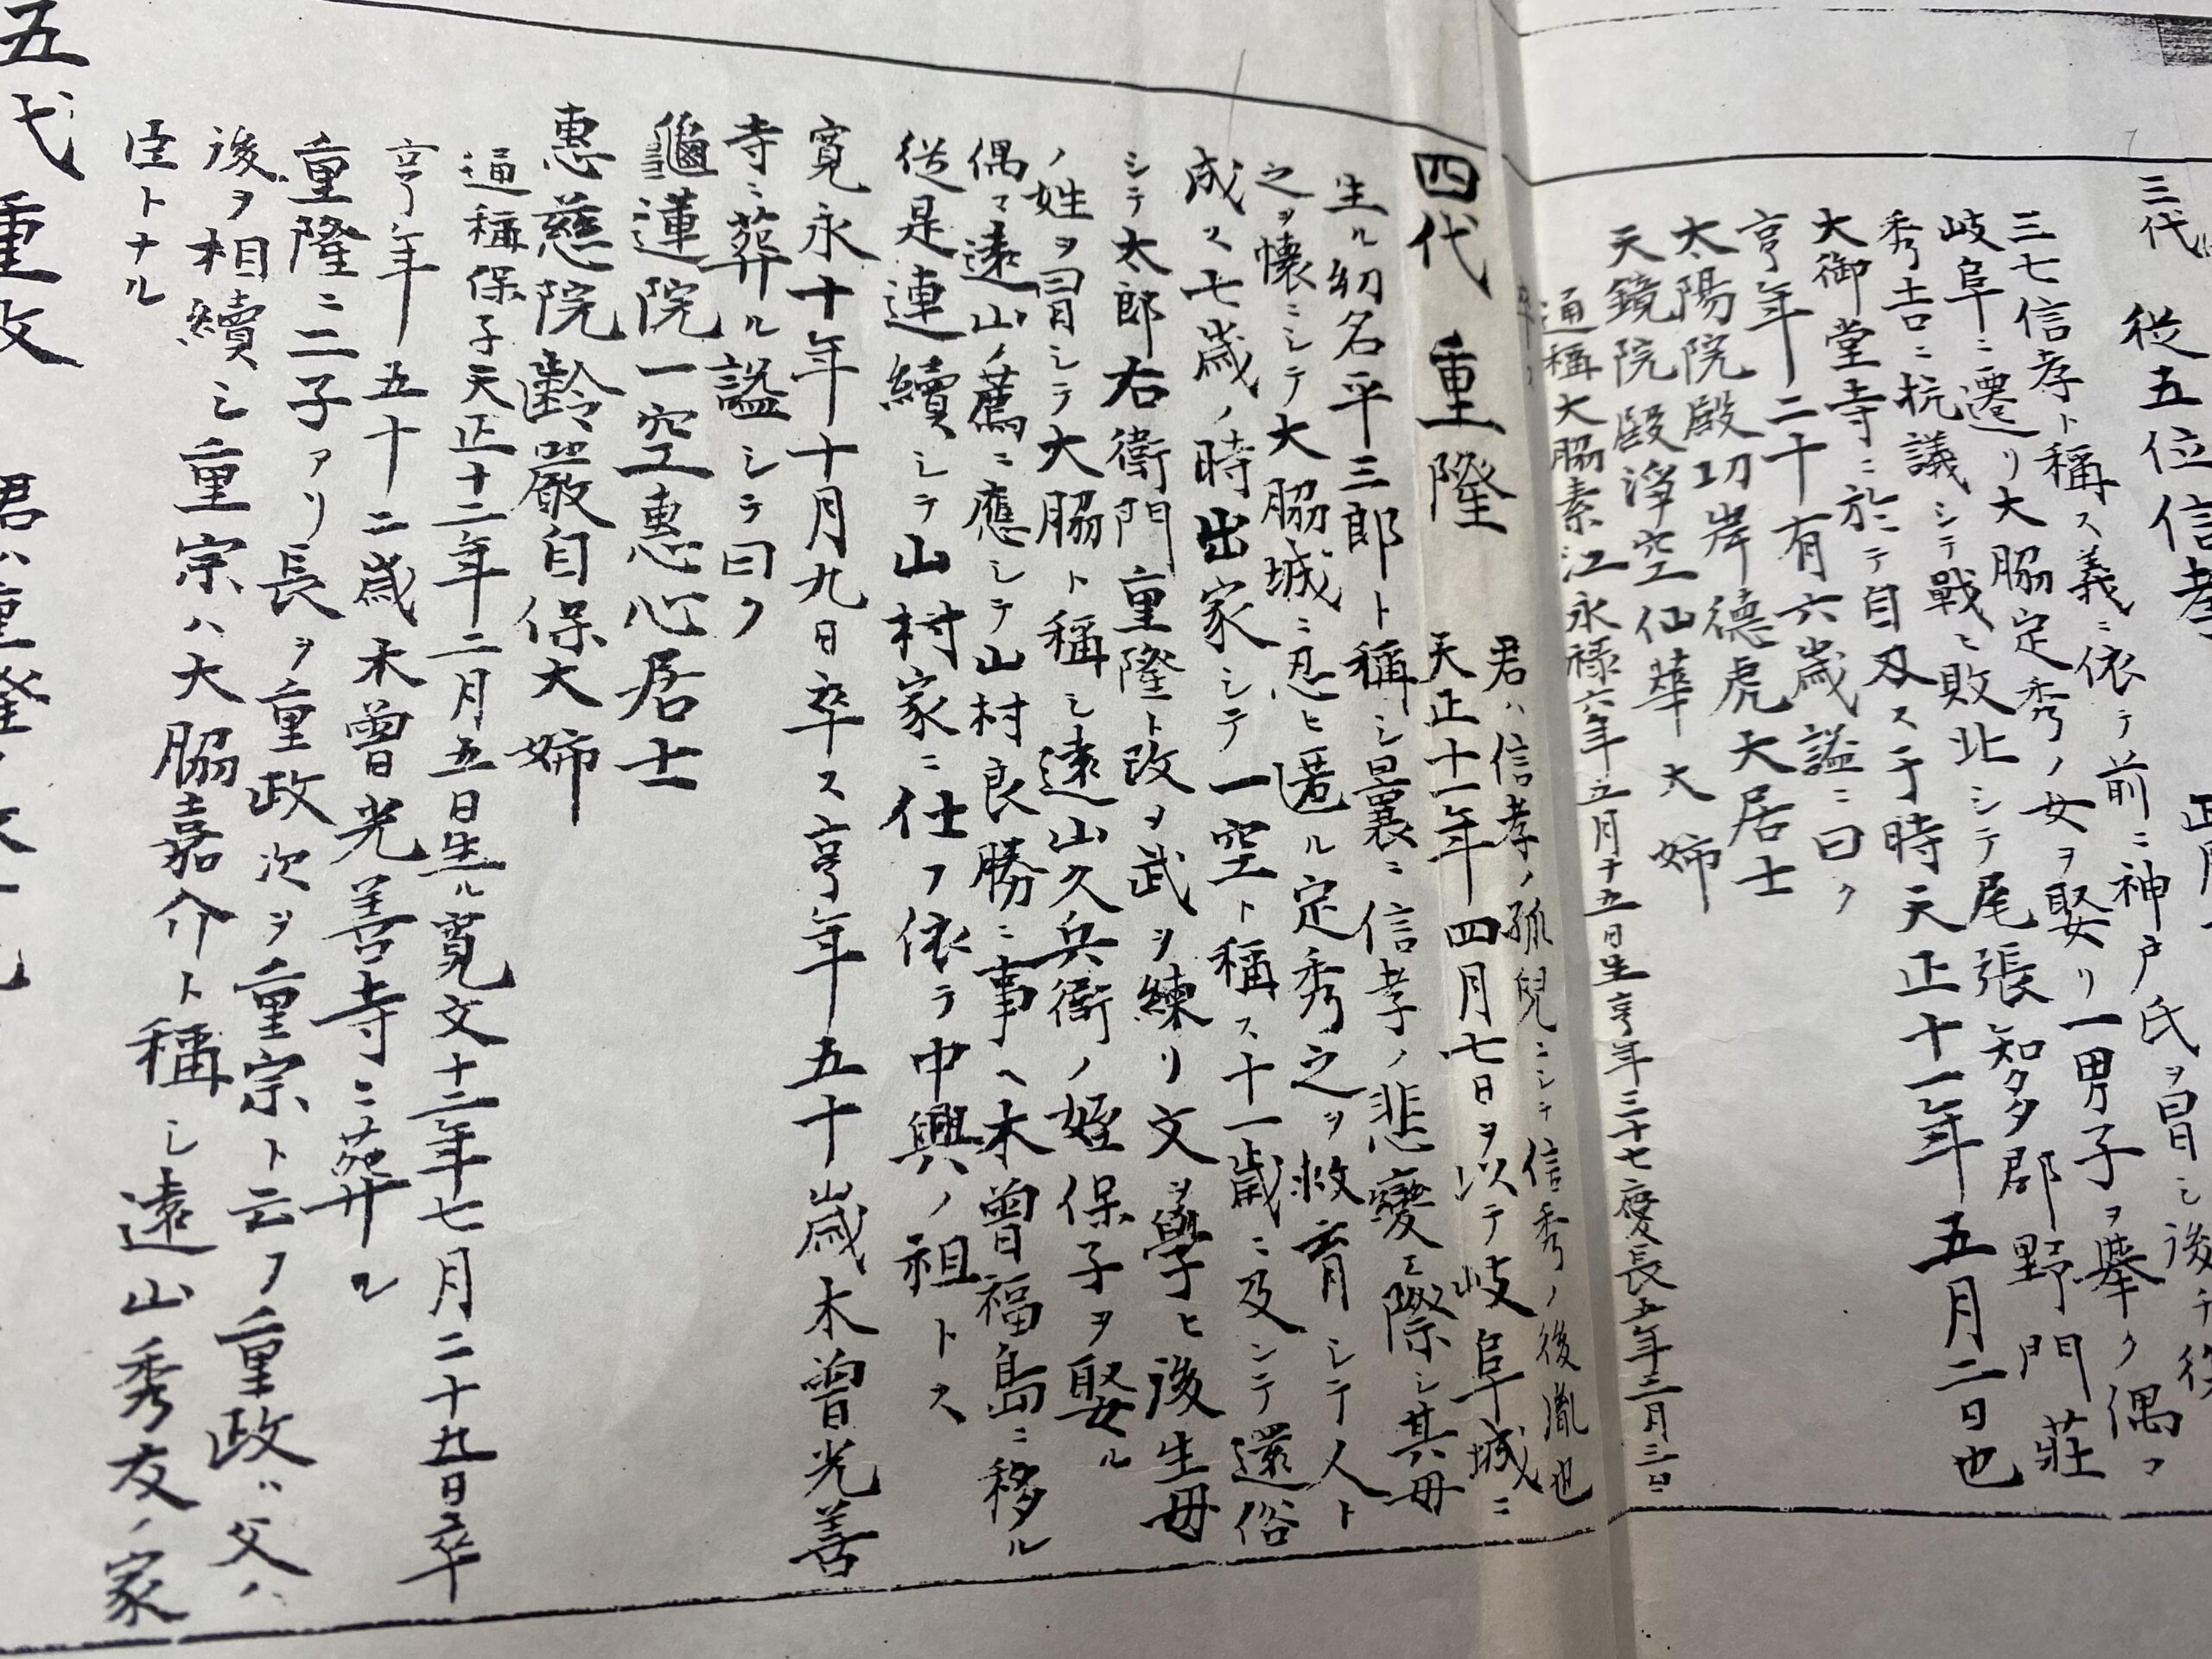 三代 従五位信孝
三七信孝ト稱ス義ニ依テ前ニ神戸氏ヲ冒シ後チ
岐阜ニ遷リ大脇定秀ノ女ヲ娶リ一男子ヲ擧ク偶マ
秀吉ニ抗議シテ戰ヒ敗北シテ尾張知多郡野門莊
大御堂寺ニ於テ自刃ス于時天正十一年五月二日也
享年二十有六歳謚ニ曰ク
太陽院殿功岸德虎大居士
天鏡院殿淨空仙華大姉
通稱大脇素江永禄六年五月十五日生享年三十七慶長五年三月三日
卒ス
四代 重隆 君ハ信孝ノ孤兒ニシテ信秀ノ後胤也
天正十一年四月七日ヲ以テ岐阜城ニ
生ル幼名平三郎ト稱シ曩ニ信孝ノ悲變ニ際シ其母
之ヲ懐ニシテ大脇城ニ忍ヒ匿ル定秀之ヲ救育シテ人ト
成ス七歳ノ時出家シテ一空ト稱ス十一歳ニ及ンテ還俗
シテ太郎右衛門重隆ト改ヲ武ヲ練リ文ヲ學ヒ後生母
ノ姓ヲ冒シテ大脇ト稱シ遠山久兵衛ノ姪保子ヲ娶ル
偶マ遠山ノ薦ニ應シテ山村良勝ニ事ヘ木曾福島ニ移ル
従是連續シテ山村家ニ仕フ依テ中興ノ祖トス
寛永十年十月九日卒ス享年五十歳木曾光善
寺ニ葬ル謚シテ曰ク
龜蓮院一空惠心居士
惠慈院齡嚴自保大姉
通稱保子天正十二年二月五日生ル寛文十二年七月二十五日卒
享年五十二歳木曾光善寺ニ葬ル
重隆ニ二子アリ長ヲ重政次ヲ重宗ト云フ重政ハ父ノ
後ヲ相續シ重宗ハ大脇嘉介ト稱シ遠山秀友ノ家
臣トナル
五代 重政 君ハ重隆ノ